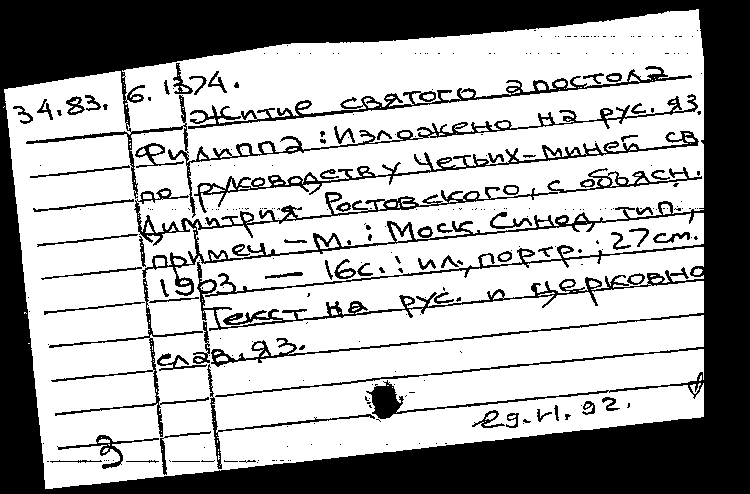 34.83. 6.1374.
Житие святого апостола
Филиппа : Изложено на рус. яз.
по руководству Четьих-миней св.
Димитрия Ростовского, с объясн.
примеч. - М. : Моск. Синод. тип.,
1903. — 16с. : ил., портр. ; 27см.
Текст на рус. и церковно
слав. яз.
З